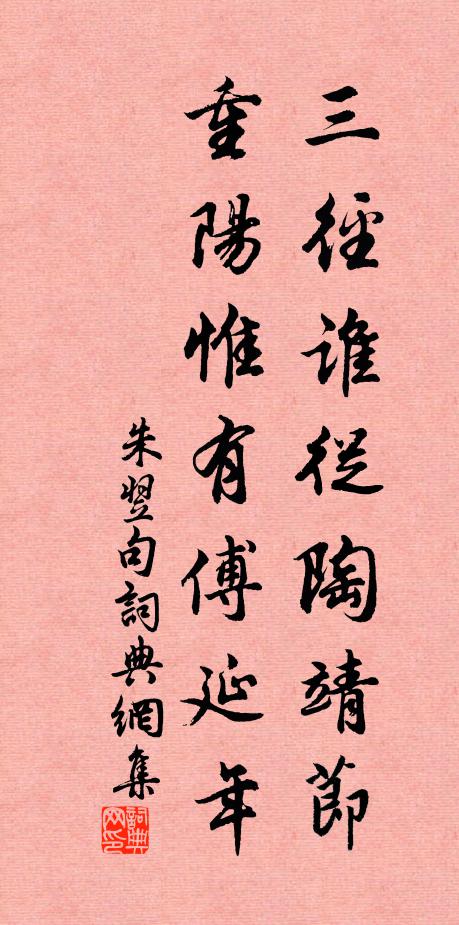 三徑誰從陶靖節
重陽惟有傅延年
朱翌句詞典網集
詞典网印